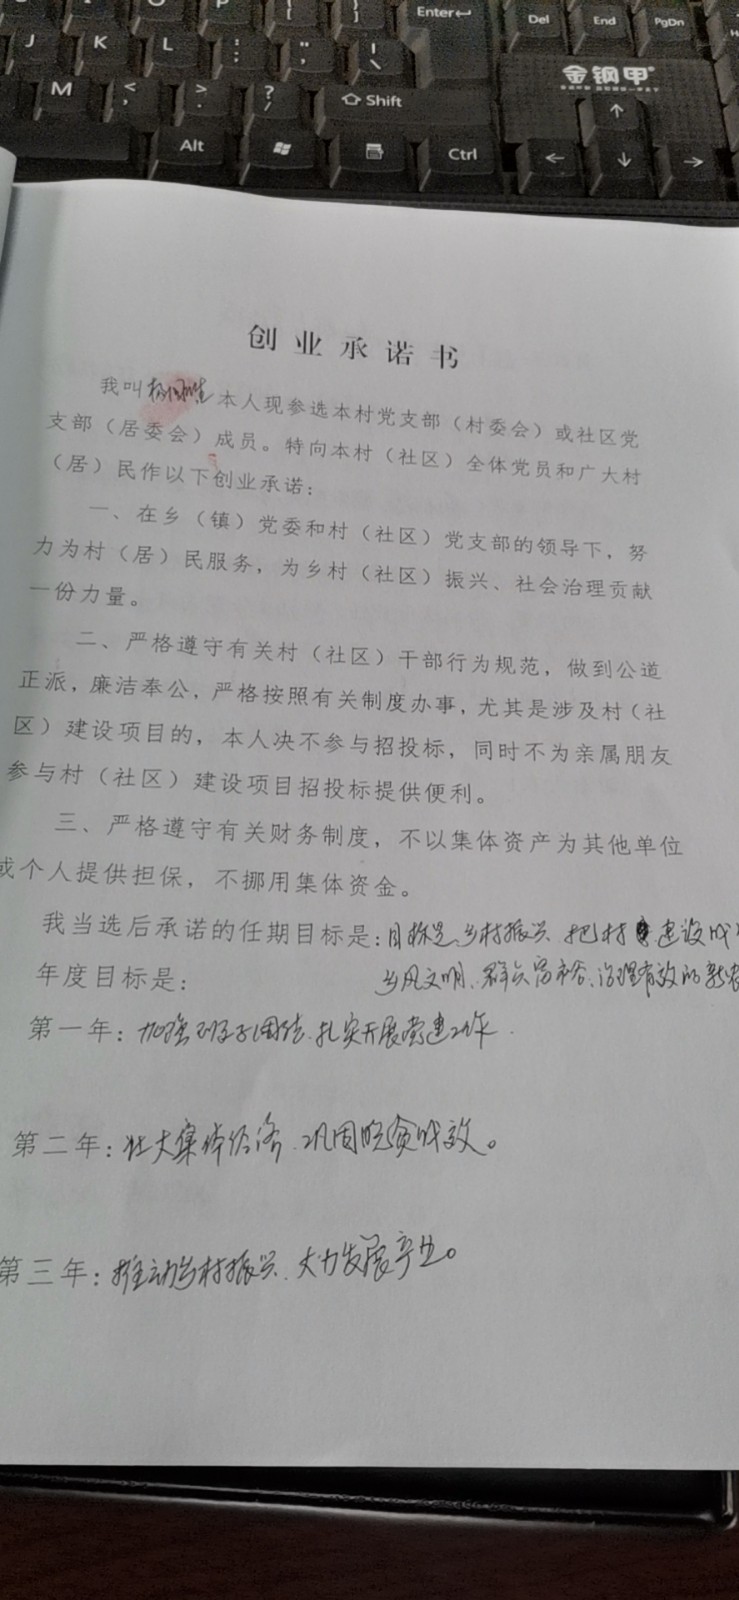 P
Enter↵
Del
End
PgDn
J
K
L
M
Shift
金钢甲
Alt
Ctrl
创业承诺书
我叫 本人现参选本村党支部（村委会）或社区党
支部（居委会）成员。特向本村（社区）全体党员和广大村
（居）民作以下创业承诺：
一、在乡（镇）党委和村（社区）党支部的领导下，努
力为村（居）民服务，为乡村（社区）振兴、社会治理贡献
一份力量。
二、严格遵守有关村（社区）干部行为规范，做到公道
正派，廉洁奉公，严格按照有关制度办事，尤其是涉及村（社
区）建设项目的，本人决不参与招投标，同时不为亲属朋友
参与村（社区）建设项目招投标提供便利。
三、严格遵守有关财务制度，不以集体资产为其他单位
或个人提供担保，不挪用集体资金。
我当选后承诺的任期目标是：目标是乡村振兴 把村 建设成
年度目标是：
乡风文明、群众富裕、治理有效的新农
第一年：加强班子团结、扎实开展党建工作.
第二年：壮大集体经济、巩固脱贫成效。
第三年：推动乡村振兴、大力发展产业。